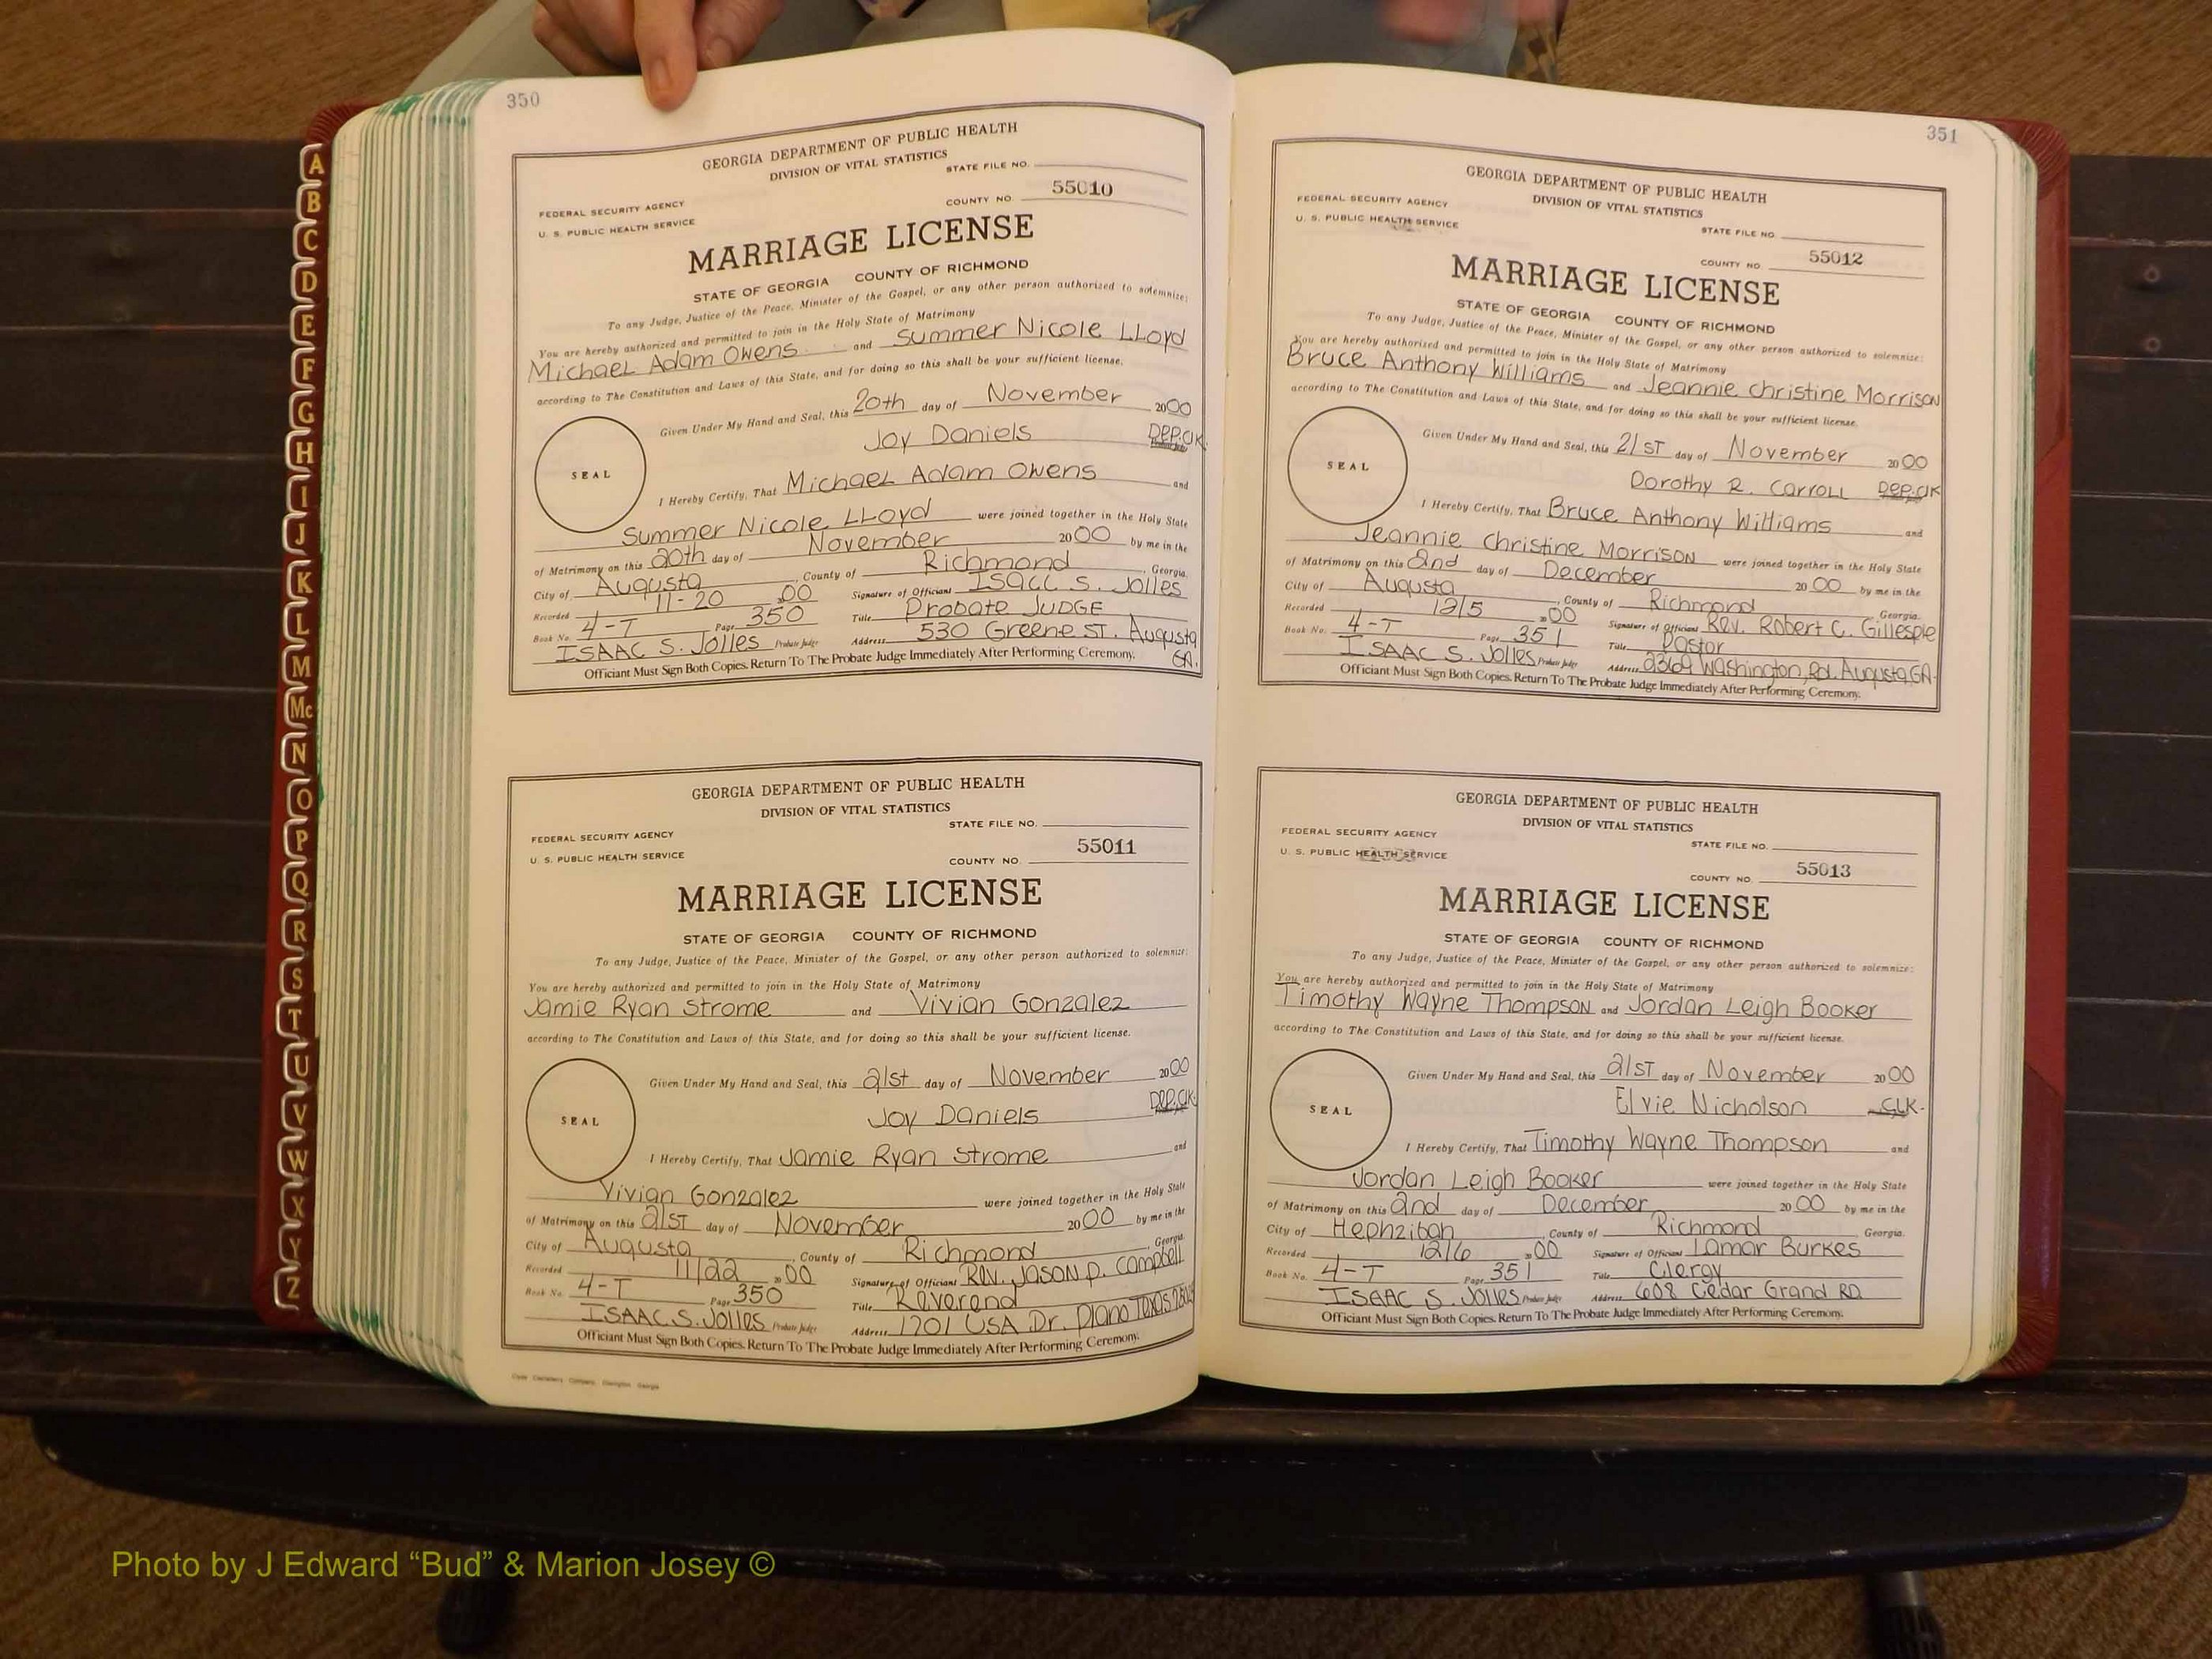 A
B
C
D
E
F
G
H
I
J
K
L
M
Mc
N
O
P
Q
R
S
T
U
V
W
X
Y
Z
350
GEORGIA DEPARTMENT OF PUBLIC HEALTH
DIVISION OF VITAL STATISTICS
STATE FILE NO.
FEDERAL SECURITY AGENCY
U. S. PUBLIC HEALTH SERVICE
COUNTY NO. 55010
MARRIAGE LICENSE
STATE OF GEORGIA COUNTY OF RICHMOND
To any Judge, Justice of the Peace, Minister of the Gospel, or any other person authorized to solemnize:
You are hereby authorized and permitted to join in the Holy State of Matrimony
Michael Adam Owens and Summer Nicole LLoyd
according to The Constitution and Laws of this State, and for doing so this shall be your sufficient license.
Given Under My Hand and Seal, this 20th day of November 2000
Joy Daniels DEP.CLK.
SEAL
I Hereby Certify, That Michael Adam Owens and
Summer Nicole LLoyd were joined together in the Holy State
of Matrimony on this 20th day of November 2000 by me in the
City of Augusta, County of Richmond, Georgia.
Recorded 11-20 2000 Signature of Officiant Isacc S. Jolles
Book No. 4-T Page 350 Title Probate JUDGE
ISAAC S. Jolles Probate Judge Address 530 Greene ST. Augusta GA.
Officiant Must Sign Both Copies. Return To The Probate Judge Immediately After Performing Ceremony.
GEORGIA DEPARTMENT OF PUBLIC HEALTH
DIVISION OF VITAL STATISTICS
STATE FILE NO.
FEDERAL SECURITY AGENCY
U. S. PUBLIC HEALTH SERVICE
COUNTY NO. 55011
MARRIAGE LICENSE
STATE OF GEORGIA COUNTY OF RICHMOND
To any Judge, Justice of the Peace, Minister of the Gospel, or any other person authorized to solemnize:
You are hereby authorized and permitted to join in the Holy State of Matrimony
Jamie Ryan Strome and Vivian Gonzalez
according to The Constitution and Laws of this State, and for doing so this shall be your sufficient license.
Given Under My Hand and Seal, this 21st day of November 2000
Joy Daniels Dep.Clk.
SEAL
I Hereby Certify, That Jamie Ryan Strome and
Vivian Gonzalez were joined together in the Holy State
of Matrimony on this 21ST day of November 2000 by me in the
City of Augusta, County of Richmond, Georgia.
Recorded 11/22 2000 Signature of Officiant Rev. Jason P. Campbell
Book No. 4-T Page 350 Title Reverend
ISAAC S. Jolles Probate Judge Address 1701 USA Dr. Plano Texas
Officiant Must Sign Both Copies. Return To The Probate Judge Immediately After Performing Ceremony.
351
GEORGIA DEPARTMENT OF PUBLIC HEALTH
DIVISION OF VITAL STATISTICS
FEDERAL SECURITY AGENCY
U. S. PUBLIC HEALTH SERVICE
STATE FILE NO.
COUNTY NO. 55012
MARRIAGE LICENSE
STATE OF GEORGIA COUNTY OF RICHMOND
To any Judge, Justice of the Peace, Minister of the Gospel, or any other person authorized to solemnize:
You are hereby authorized and permitted to join in the Holy State of Matrimony
Bruce Anthony Williams and Jeannie Christine Morrison
according to The Constitution and Laws of this State, and for doing so this shall be your sufficient license.
Given Under My Hand and Seal, this 21ST day of November 2000
Dorothy R. Carroll Dep.Clk
SEAL
I Hereby Certify, That Bruce Anthony Williams and
Jeannie Christine Morrison were joined together in the Holy State
of Matrimony on this 2nd day of December 2000 by me in the
City of Augusta, County of Richmond, Georgia.
Recorded 12/5 2000 Signature of Officiant Rev. Robert C. Gillespie
Book No. 4-T Page 351 Title Pastor
ISAAC S. Jolles Probate Judge Address 2369 Washington, Rd. Augusta, GA.
Officiant Must Sign Both Copies. Return To The Probate Judge Immediately After Performing Ceremony.
GEORGIA DEPARTMENT OF PUBLIC HEALTH
DIVISION OF VITAL STATISTICS
FEDERAL SECURITY AGENCY
U. S. PUBLIC HEALTH SERVICE
STATE FILE NO.
COUNTY NO. 55013
MARRIAGE LICENSE
STATE OF GEORGIA COUNTY OF RICHMOND
To any Judge, Justice of the Peace, Minister of the Gospel, or any other person authorized to solemnize:
You are hereby authorized and permitted to join in the Holy State of Matrimony
Timothy Wayne Thompson and Jordan Leigh Booker
according to The Constitution and Laws of this State, and for doing so this shall be your sufficient license.
Given Under My Hand and Seal, this 21ST day of November 2000
Elvie Nicholson CLK.
SEAL
I Hereby Certify, That Timothy Wayne Thompson and
Jordan Leigh Booker were joined together in the Holy State
of Matrimony on this 2nd day of December 2000 by me in the
City of Hephzibah, County of Richmond Georgia.
Recorded 12/6 2000 Signature of Officiant Lamar Burkes
Book No. 4-T Page 351 Title Clergy
ISAAC S. Jolles Probate Judge Address 608 Cedar Grand RD
Officiant Must Sign Both Copies. Return To The Probate Judge Immediately After Performing Ceremony.
Photo by J Edward “Bud” & Marion Josey ©